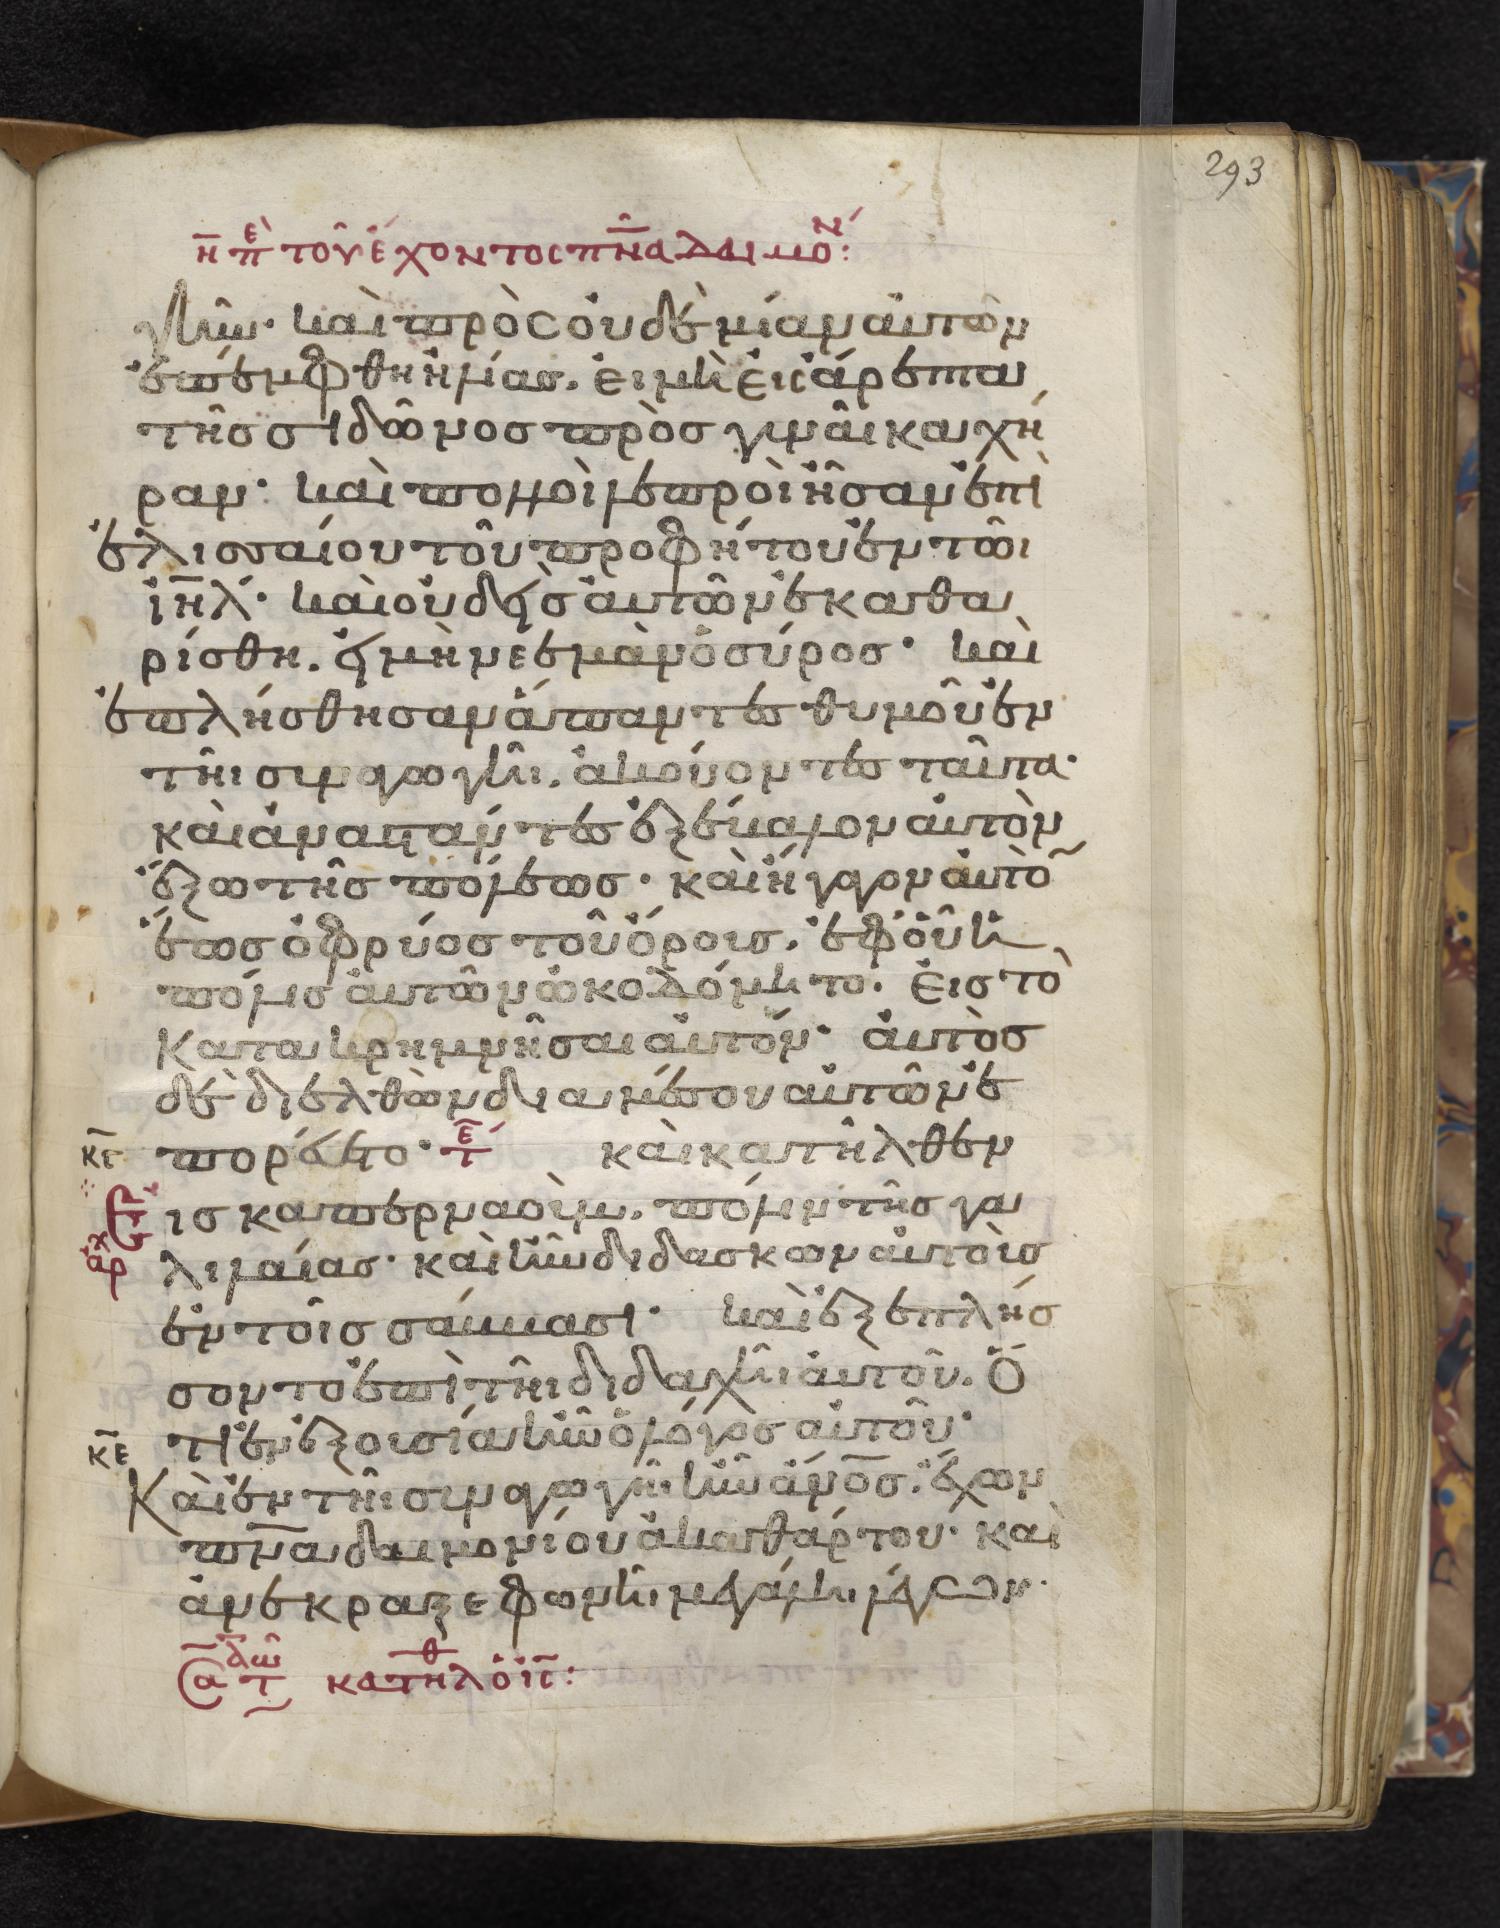 293
η̅ π̅ὲ τοῦ ἔχοντος πν̅α δαιμον́:
γῆν· καὶ πρὸς οὐδὲ μίαν αὐτῶν
ἐπέμφθη ἠλίας. εἰ μὴ εἰς άρεπτα
τῆς σιδῶνος πρὸς γυναῖκα χή
ραν· καὶ πολλοὶ λεπροὶ ἦσαν ἐπὶ
ἐλισσαίου τοῦ προφήτου ἐν τῶι
ἰη̅λ· καὶ οὐδεὶς αὐτῶν ἐκαθα
ρίσθη. εἰ μὴ νεεμὰν ὁ σύρος· καὶ
ἐπλήσθησαν ἅπαντες θυμοῦ ἐν
τῆι συναγωγῆι. ἀκούοντες ταῦτα·
καὶ ἀναστάντες ἐξέβαλον αὐτὸν
ἔξω τῆς πόλεως· καὶ ἤγαγον αὐτὸ̅
ἕως ὀφρύος τοῦ ὄρους. ἐφ οὗ ἡ
πόλις αὐτῶν ὠκοδόμητο. εἰς τὸ
κατακρημνῆσαι αὐτόν· αὐτὸς
δὲ διελθὼν διαμέσου αὐτῶν ἐ
κ̅ς πορεύετο· τ̅ε̅ καὶ κατῆλθεν
ἀρχ
ις καπερναούμ. πόλιν τῆς γα
λιλαίας· καὶ ἦν διδάσκων αὐτοὺς
ἐν τοῖς σάββασι· καὶ ἐξεπλήσ
σοντο ἐπὶ τῆι διδαχῆι αὐτοῦ. ὅ
τι ἐν ἐξουσία ἦν ὁ λόγος αὐτοῦ·
κ̅ε
Καὶ ἐν τῆι συναγωγῆι ἦν ἄνο̅ς. ἔχων
πν̅α δαιμονίου ἀκαθάρτου· καὶ
ἀνέκραξε φωνῆι μεγάληι λέγων·